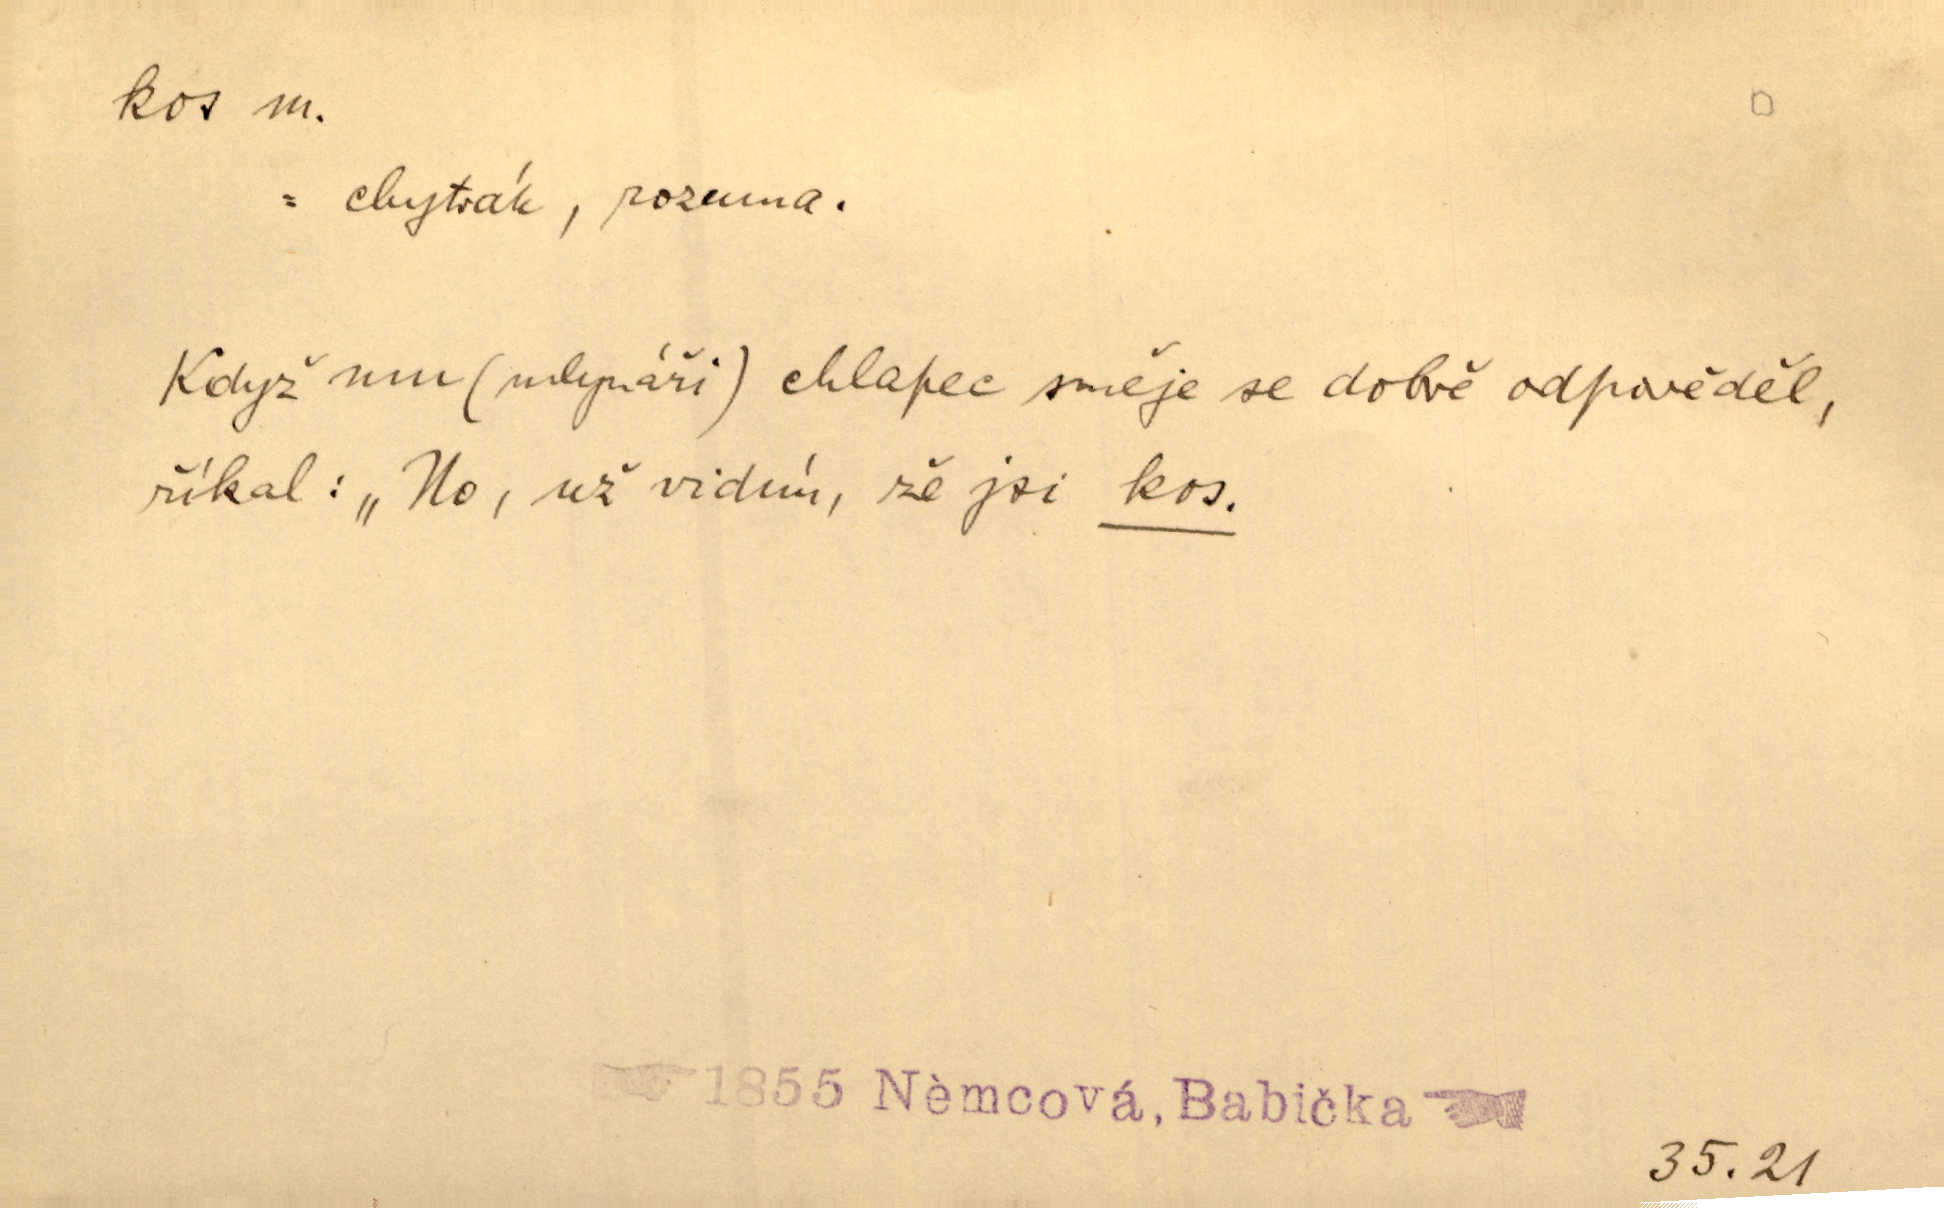 kos m.
= chytrák, rozuma.
Když mu (mlynáři) chlapec směje se dobře odpověděl,
říkal: „No, už vidím, že jsi kos.
1855 Němcová, Babička
35.21